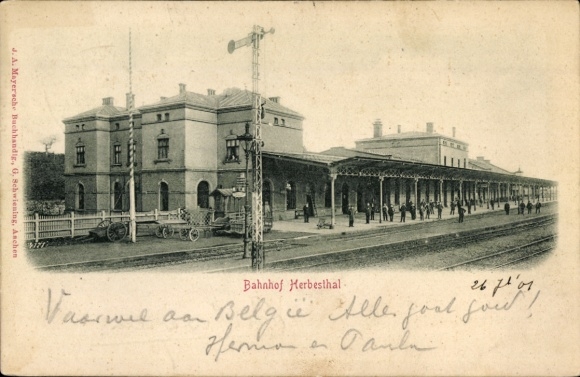 J. A. Mayersche Buchhandlg., G. Schwiening, Aachen
Bahnhof Herbesthal
26 Jl '01
Vaarwel aan België Alles gaat goed!
Herman en Paula